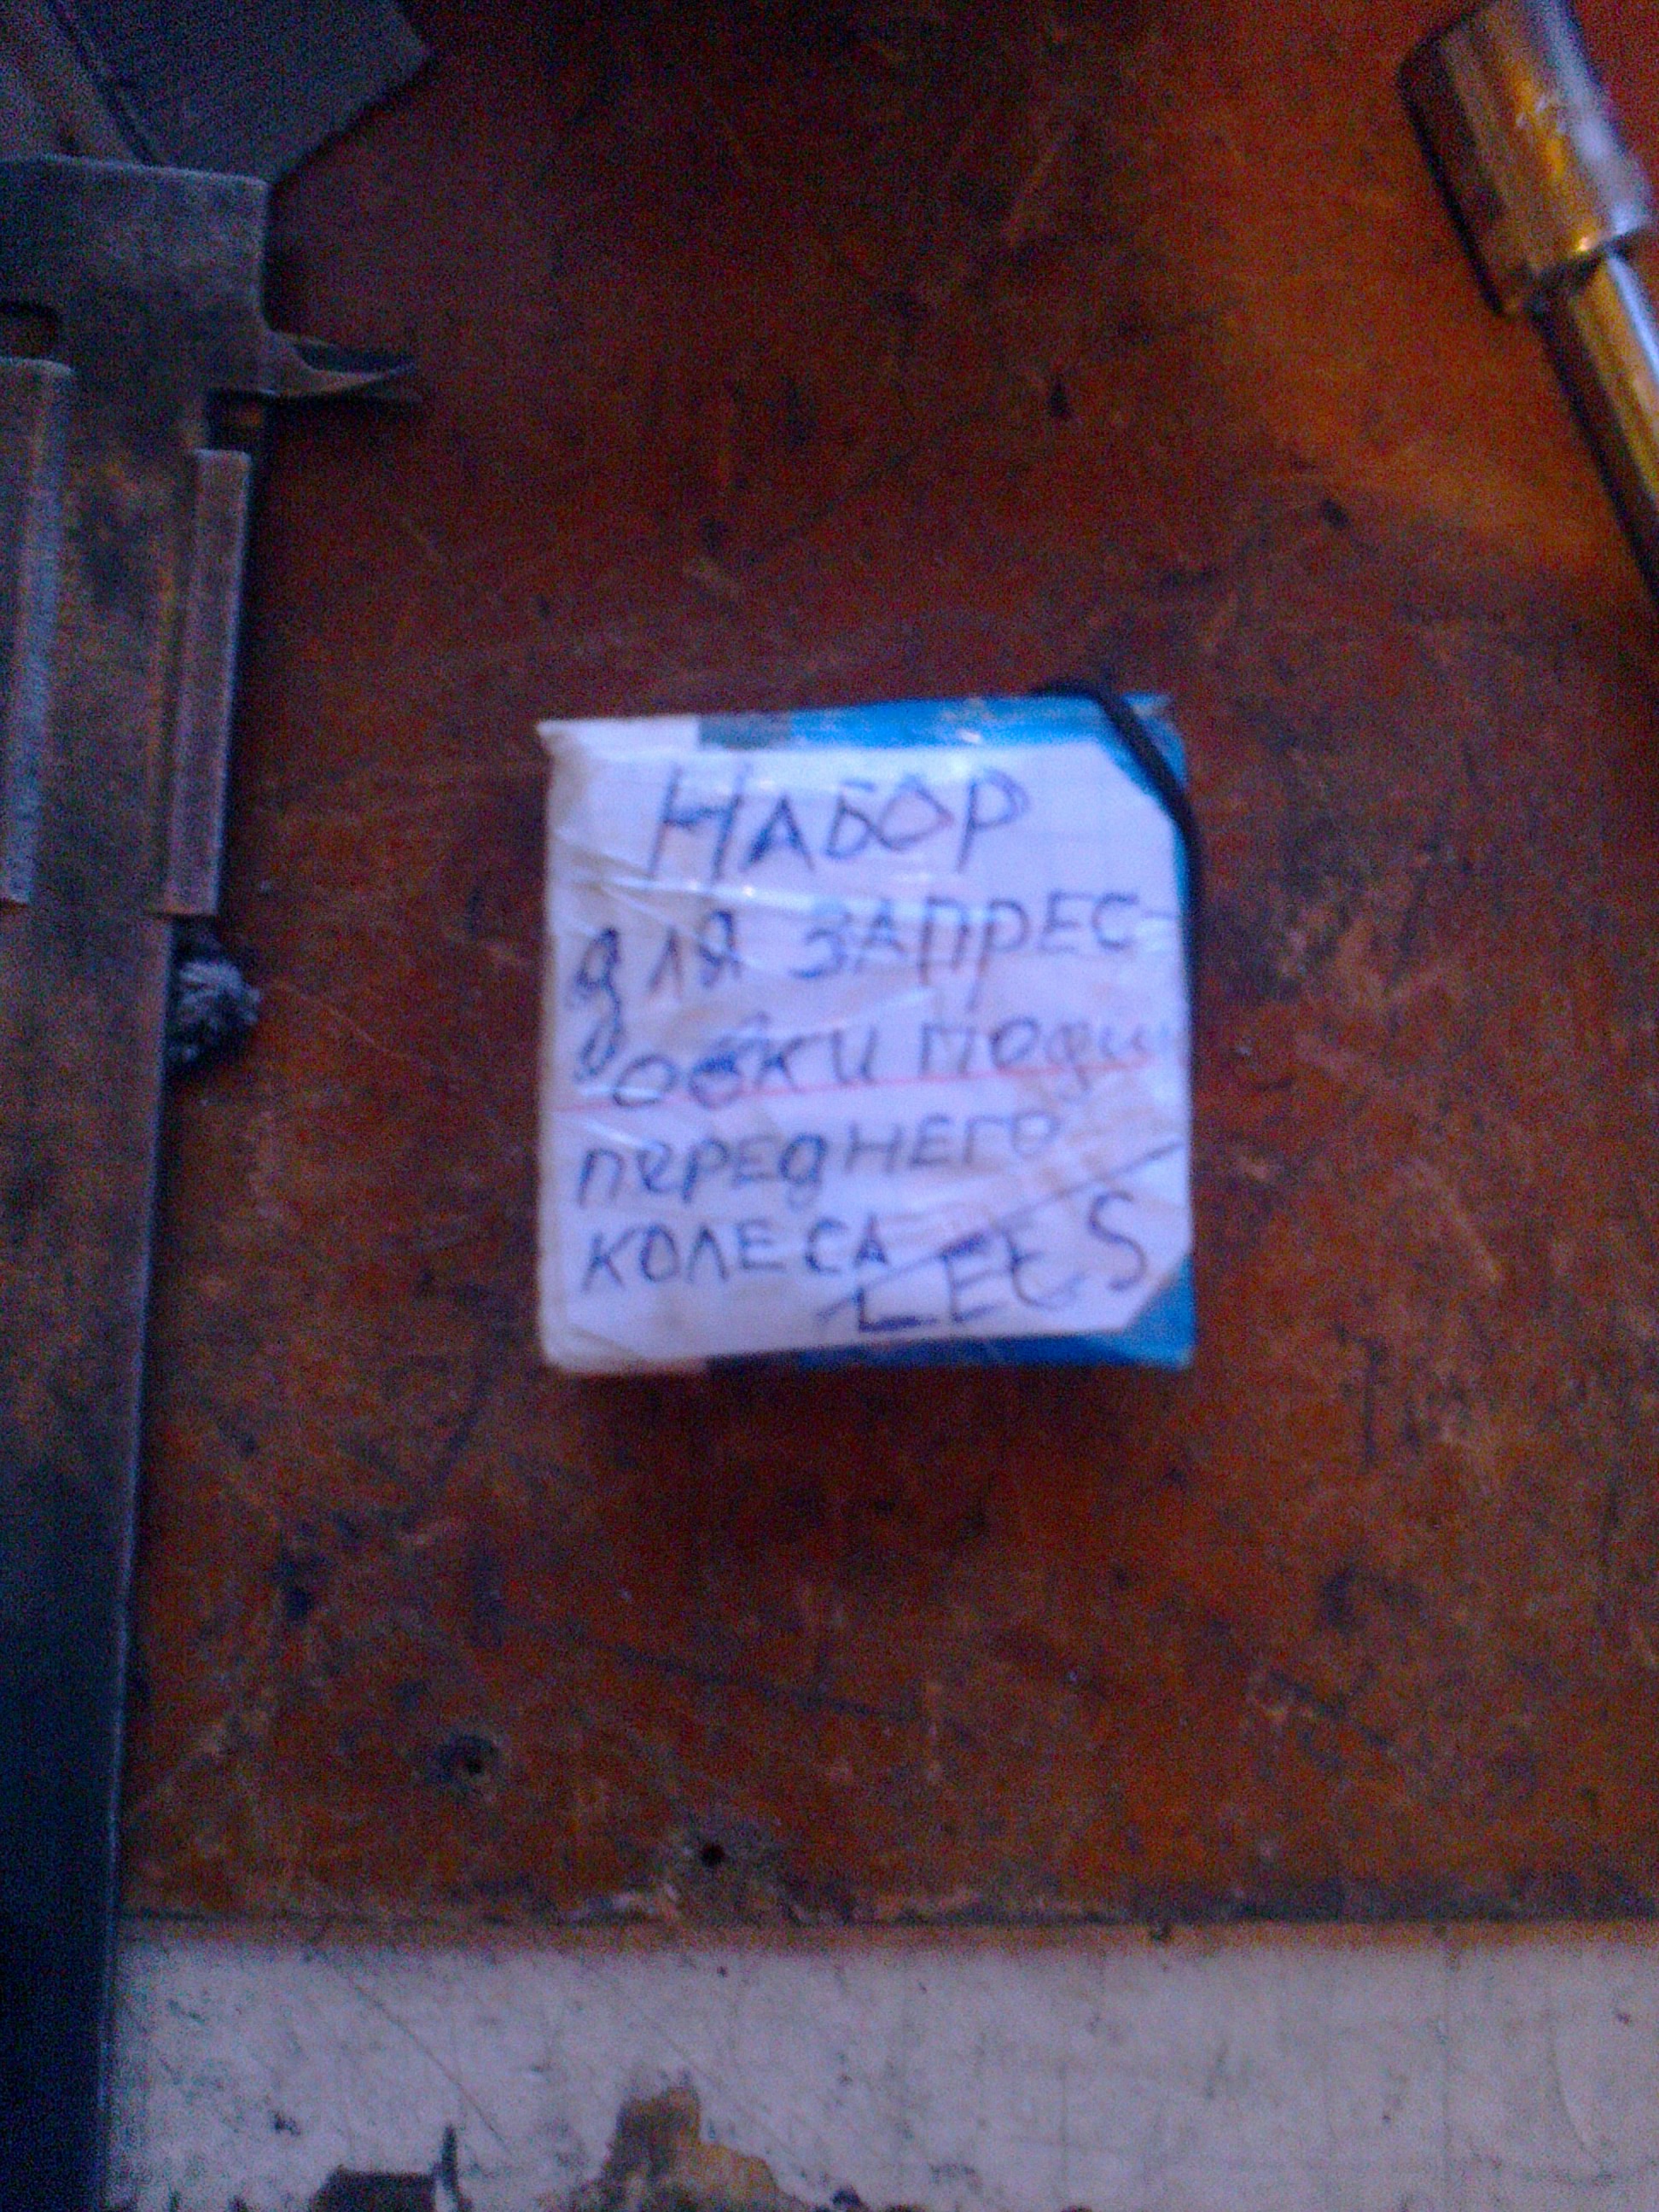 НАБОР
для ЗАПРЕС-
овки подш
переднего
КОЛЕСА